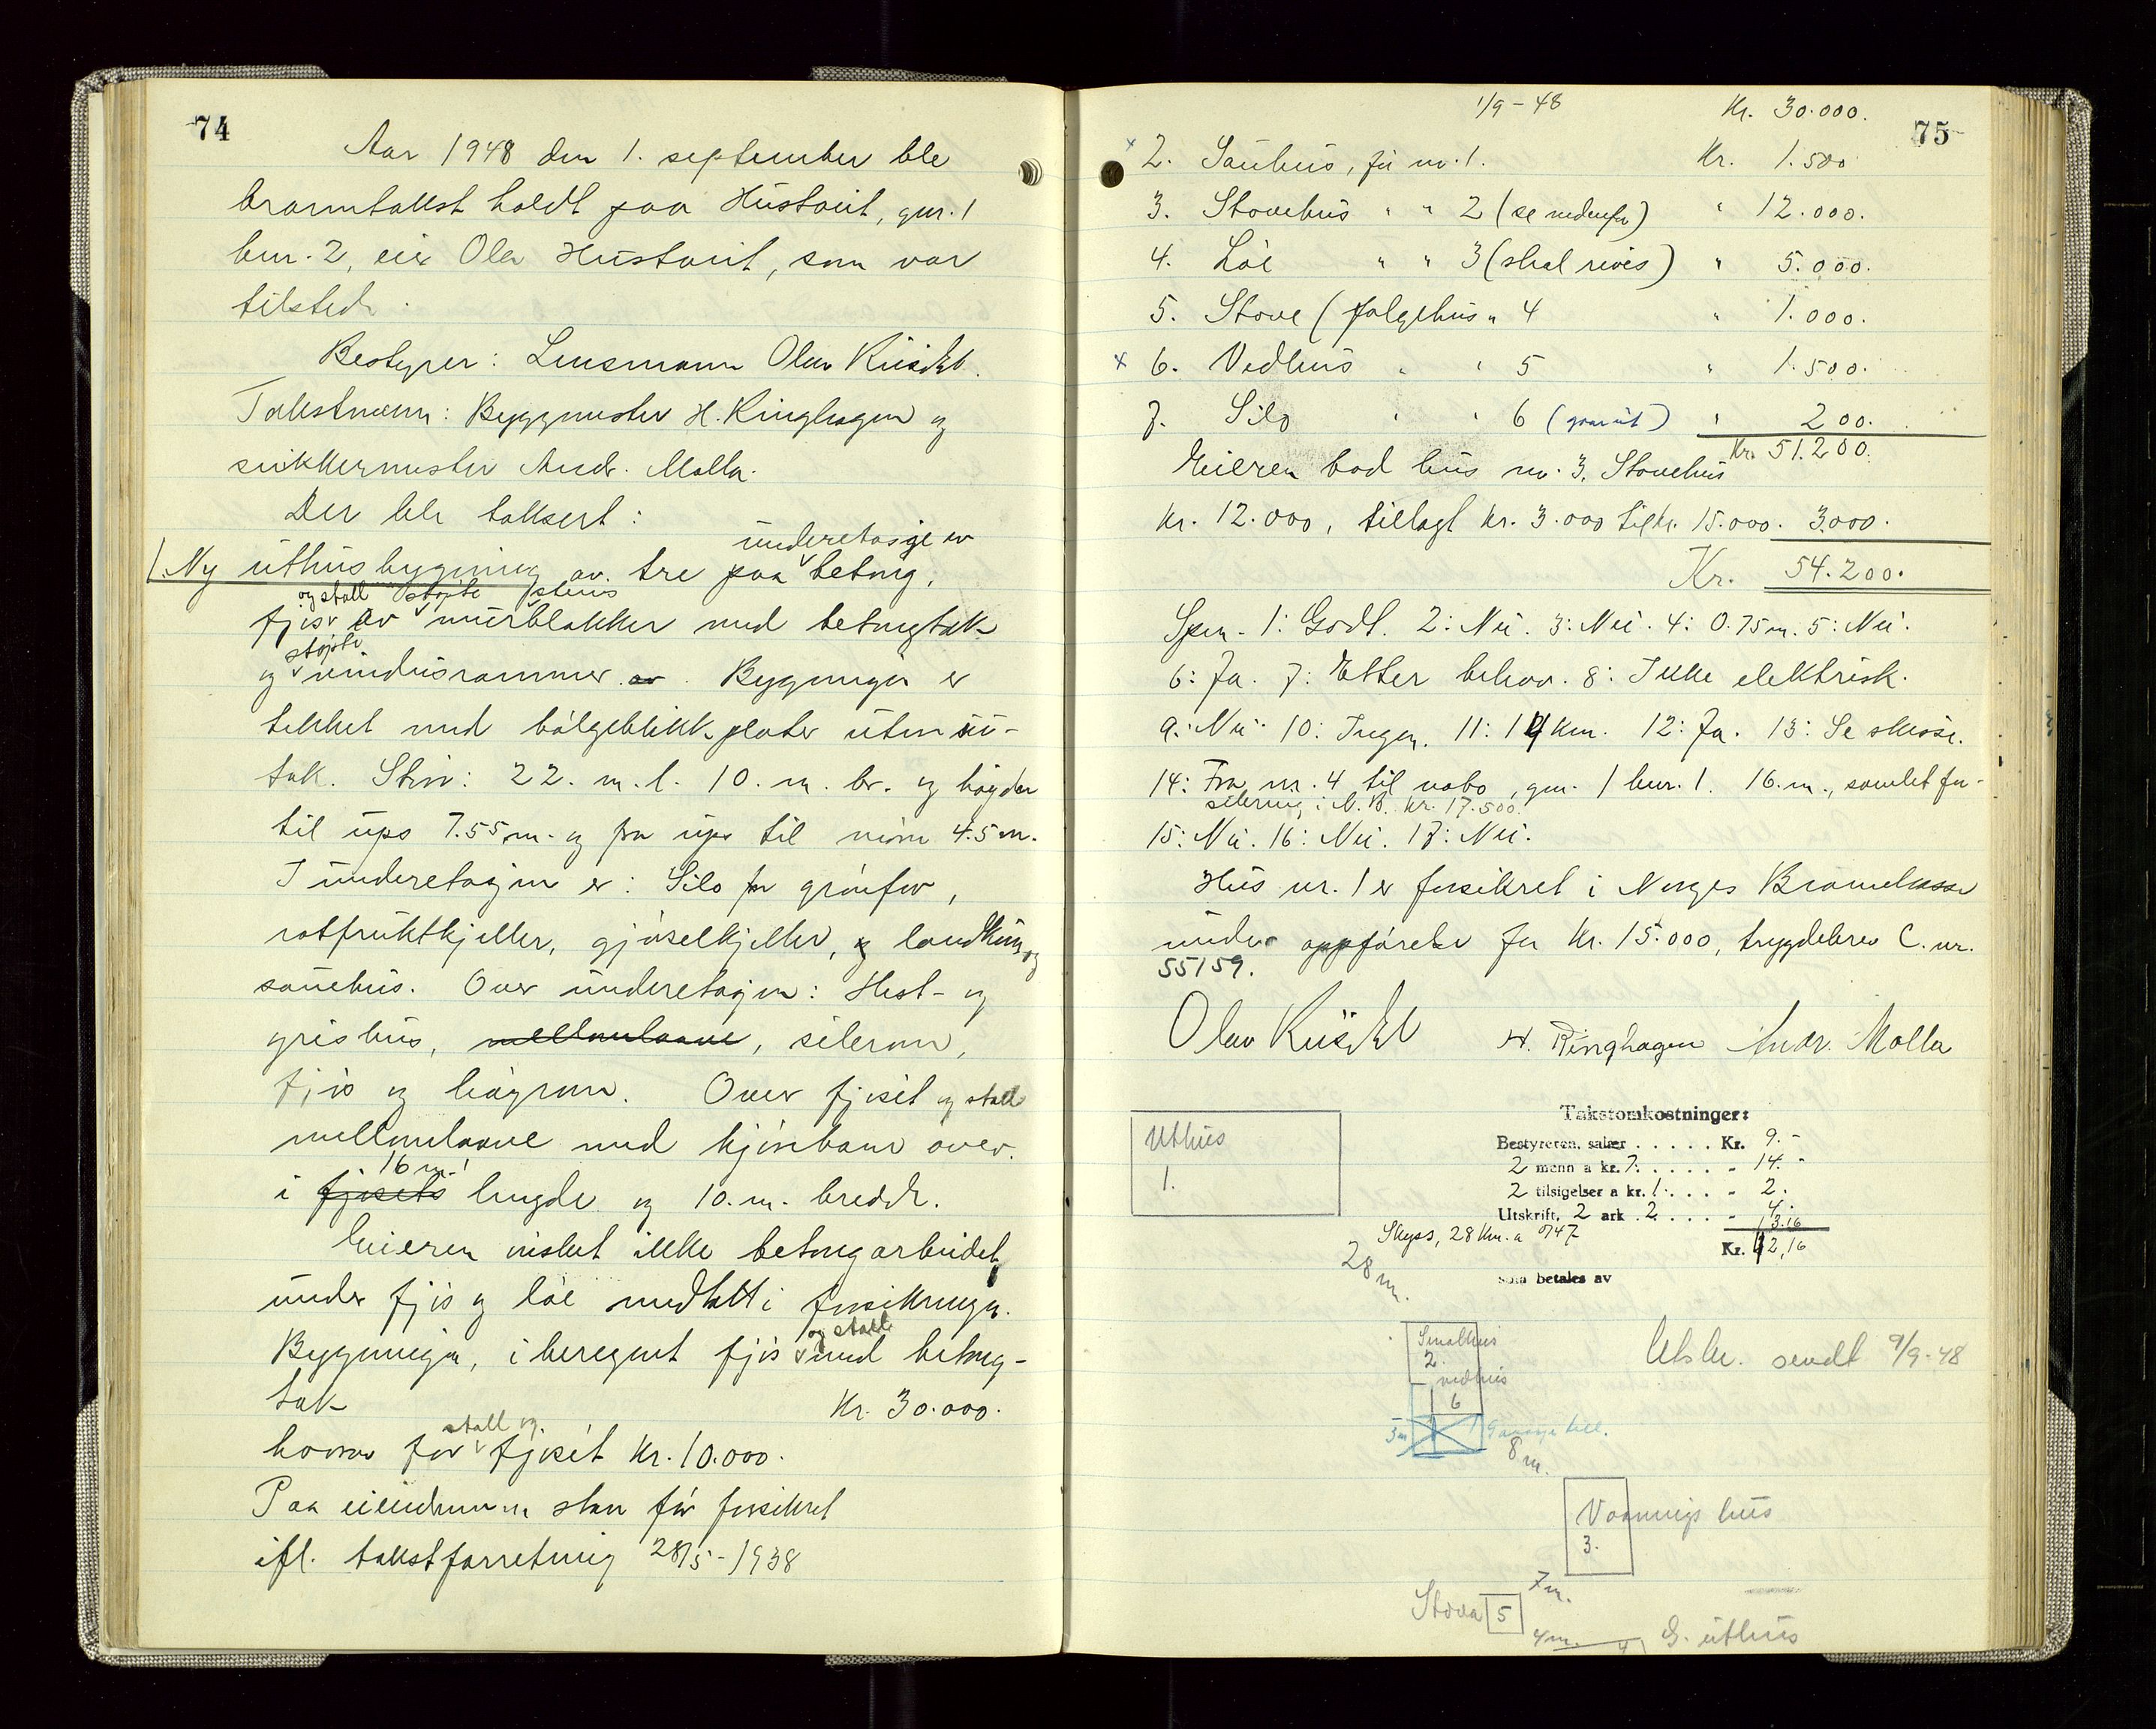 74
Aar 1948 den 1. september ble
branntakst holdt paa Hustveit, gnr. 1
bnr. 2, eier Ola Hustveit, som var
tilstede.
Bestyrer: Lensmann Olav
Takstmenn: Byggmester H. Ringhagen og
snikkermester Andr. Molla.
Der ble taksert:
underetasje er
1. Ny uthusbygning av tre paa betong,
og stall støpte steins
fjøs av murblokker med betongtak
støpte
og vindusrammer av. Bygningen er
tekket med bølgeblikkplater uten su-
tak. Størr: 22. m. l. 10. m. br. og høyder
til ups 7.55 m. og fra ups til møne 4.5 m.
I underetasjen er: Silo for grønfor,
rotfruktkjeller, gjøselkjeller, og landkum og
sauehus. Over underetasjen: Hest- og
grishus, mellomlaave, silorom,
fjøs og høyrom. Over fjøset og stall
mellomlaave med kjørebane over.
16 m.
i fjøsets lengde og 10. m. bredde.
Eieren ønsket ikke betongarbeidet
under fjøs og løe medtatt i forsikringen.
og stall
Bygningen, iberegnet fjøs med betong-
tak Kr. 30.000.
stall og
hvorav for fjøset Kr. 10.000.
Paa eiendommen staar før forsikret
ifl. takstforretning 28/5-1938
1/9-48 Kr. 30.000.
75
x 2. Sauhus, før nr. 1. Kr. 1.500
3. Stovehus " " 2 (se nedenfor) " 12.000.
4. Løe " " 3 (skal rives) " 5.000.
5. Stove (følgehus " 4 " 1.000.
x 6. Vedhus " " 5 " 1.500.
7. Silo " " 6 " 200.
Kr. 51.200.
Eieren bad hus nr. 3. Stovehus
Kr. 12.000, tillagt Kr. 3.000 til kr. 15.000. 3.000.
Kr. 54.200.
Spm. 1: Godt. 2: Nei. 3: Nei. 4: 0.75 m. 5: Nei.
6: Ja. 7: Etter behov. 8: Ikke elektrisk.
9: Nei 10: Ingen. 11: 14 km. 12: Ja. 13: Se skisse.
14: Fra nr. 4 til nabo, gnr. 1 bnr. 1. 16. m., samlet for-
sikring i N. B. kr. 17.500.
15: Nei. 16: Nei. 17: Nei.
Hus nr. 1 er forsikret i Norges Brannkasse
under oppførelse for Kr. 15.000, trygdebrev C. nr.
55159.
Olav H. Ringhagen Andr. Molla
Uthus
1.
Takstomkostninger:
Bestyreren, salær . . . . . Kr. 9.-
2 menn a kr. 7. . . . . . " 14.-
2 tilsigelser a kr. 1. . . . " 2.
Utskrift, 2 ark 2 . . . . " 4.
Skyss, 28 km. a 0/47 13.16
Kr. 42,16
som betales av
28 m.
Smalhus
2.
vedhus
6
3 m Garasje till.
8 m.
Utskr. sendt 9/9-48
Vaaningshus
3.
7 m.
Stova 5
4 m. 4 G. uthus